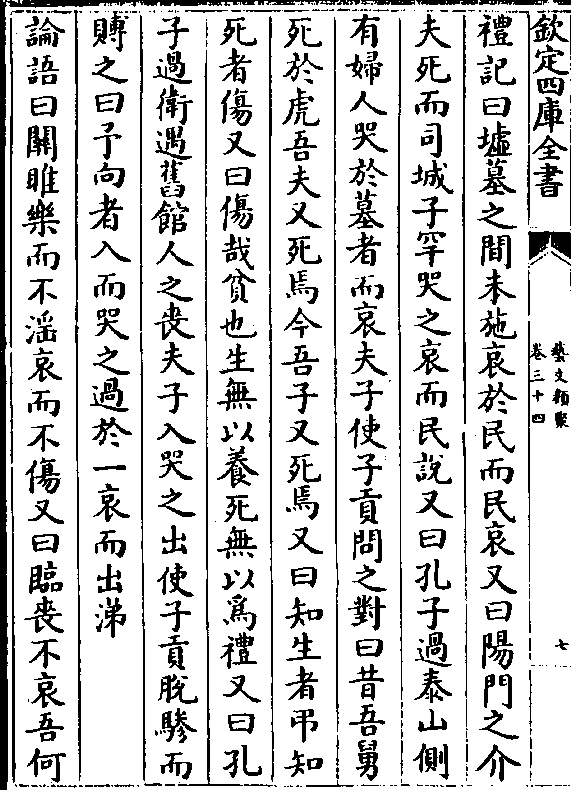 欽定四庫全書
藝文類聚
卷三十四
七
禮記曰墟墓之間未施哀於民而民哀又曰陽門之介
夫死而司城子罕哭之哀而民說又曰孔子過泰山側
有婦人哭於墓者而哀夫子使子貢問之對曰昔吾舅
死於虎吾夫又死焉今吾子又死焉又曰知生者弔知
死者傷又曰傷哉貧也生無以養死無以為禮又曰孔
子過衛遇舊館人之喪夫子入哭之出使子貢脫驂而
賻之曰予向者入而哭之過於一哀而出涕
論語曰關雎樂而不滛哀而不傷又曰臨喪不哀吾何